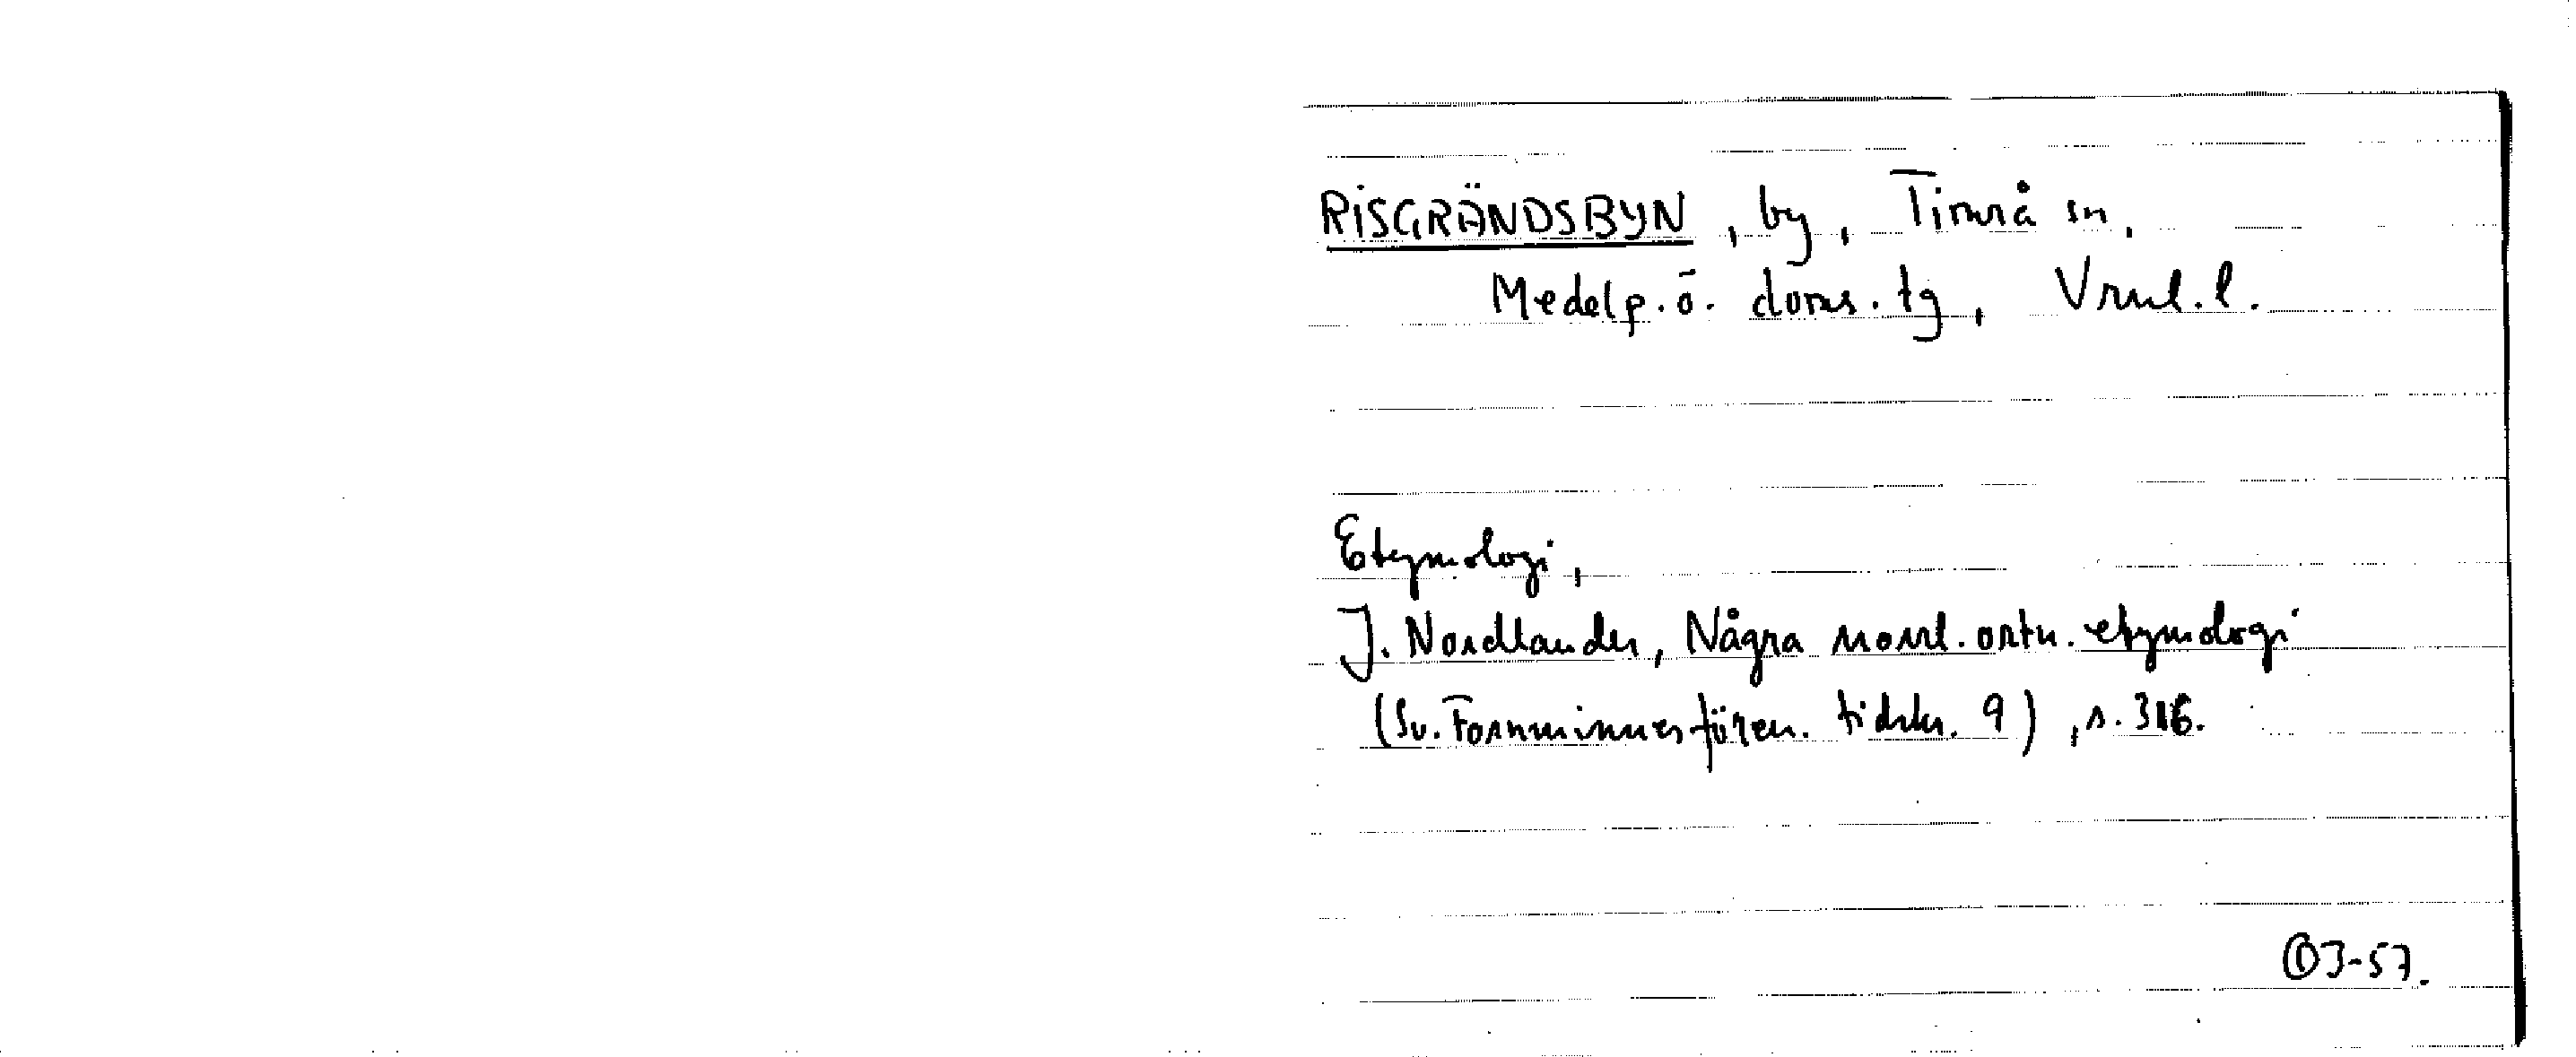 RISGRÄNDSBYN, by, Timrå sn,
Medelp. ö. doms. tg, Vrnl. l.
Etymologi,
J. Nordlander, Några norrl. ortn. etymologi
(Sv. Fornminnesfören. tidskr. 9), s. 316.
OJ-57.